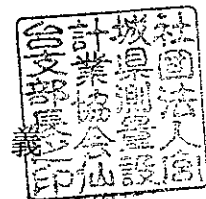 社団法人宮
城県測量設
計業協会仙
台支部長之印
義